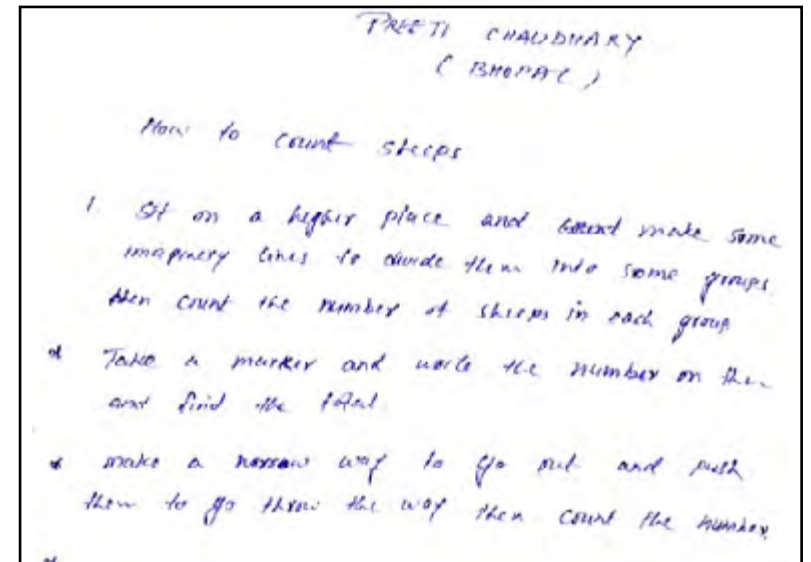 PREETI CHAUDHARY
( BHOPAL )
How to count sheeps
1. Sit on a higher place and make some
imaginery lines to divide them into some groups.
then count the number of sheeps in each group
Take a marker and write the number on them
and find the total.
make a narrow way to go out and push
them to go throw the way then count the number.